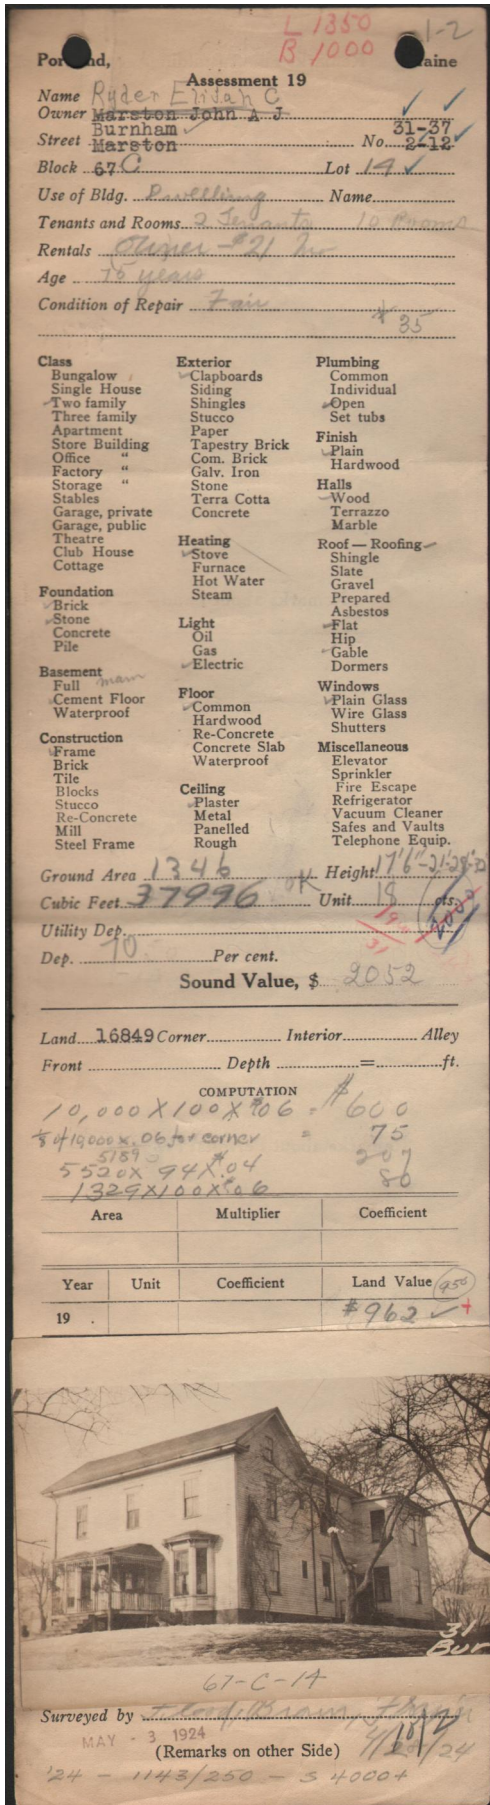 L 1350
B 1000
1-2
Portland, Maine
Assessment 19
Name Ryder Elijah C
Owner Marston John A J
Burnham 31-37
Street Marston No. 2-12
Block 67 C Lot 14
Use of Bldg. Dwelling Name
Tenants and Rooms 2 Tenants 10 Rooms
Rentals Owner - $21 mo
Age 75 years
Condition of Repair Fair
$35
Class
Bungalow
Single House
Two family
Three family
Apartment
Store Building
Office "
Factory "
Storage "
Stables
Garage, private
Garage, public
Theatre
Club House
Cottage
Foundation
Brick
Stone
Concrete
Pile
Basement
Full main
Cement Floor
Waterproof
Construction
Frame
Brick
Tile
Blocks
Stucco
Re-Concrete
Mill
Steel Frame
Exterior
Clapboards
Siding
Shingles
Stucco
Paper
Tapestry Brick
Com. Brick
Galv. Iron
Stone
Terra Cotta
Concrete
Heating
Stove
Furnace
Hot Water
Steam
Light
Oil
Gas
Electric
Floor
Common
Hardwood
Re-Concrete
Concrete Slab
Waterproof
Ceiling
Plaster
Metal
Panelled
Rough
Plumbing
Common
Individual
Open
Set tubs
Finish
Plain
Hardwood
Halls
Wood
Terrazzo
Marble
Roof — Roofing
Shingle
Slate
Gravel
Prepared
Asbestos
Flat
Hip
Gable
Dormers
Windows
Plain Glass
Wire Glass
Shutters
Miscellaneous
Elevator
Sprinkler
Fire Escape
Refrigerator
Vacuum Cleaner
Safes and Vaults
Telephone Equip.
Ground Area 1346 Height 17'6"-21'-28'
Cubic Feet 37996 OK Unit 18 cts.
Utility Dep.
Dep. 70 Per cent.
Sound Value, $ 2052
Land 16849 Corner Interior Alley
Front Depth = ft.
COMPUTATION
10,000 X 100 X $.06 = $600
⅛ of 10000 x .06 for corner = 75
5189
5520 X 94 X $.04 207
1329 X 100 X $.06 80
Area Multiplier Coefficient
Year Unit Coefficient Land Value 950
19 . $962 +
31
Bur
67-C-14
Surveyed by
MAY - 3 1924
(Remarks on other Side)
'24 - 1143/250 - S 4000+